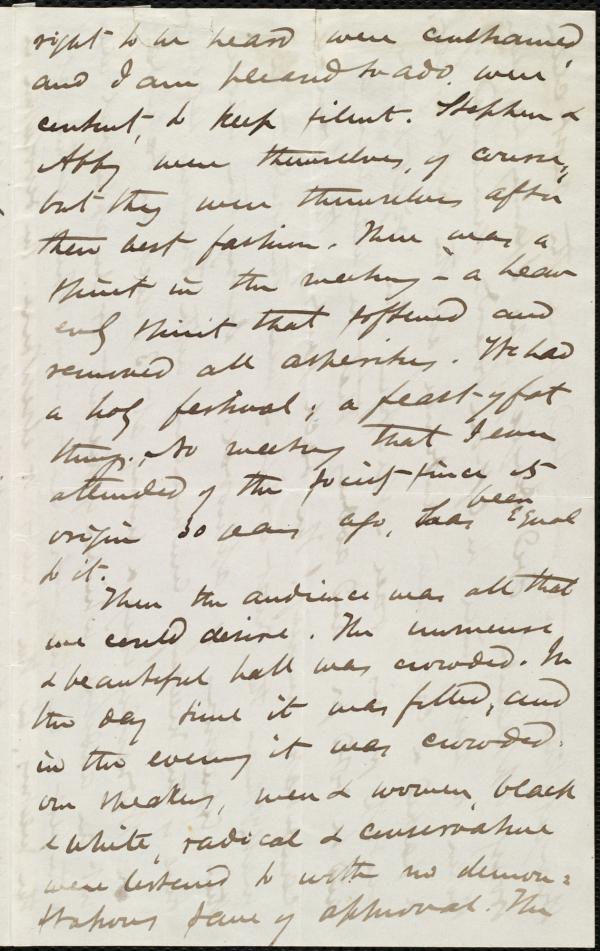 right to be heard were enthroned
and I am pleased to add, were
content, to keep silent. Stephen &
Abby were themselves, of course,
but they were themselves after
their best fashion. There was a
spirit in the meeting - a heav
enly spirit that softened and
removed all asperities. We had
a holy festival; a feast of fat
things. No meeting that I ever
attended of the Society since its
origin 30 years ago, has been equal
to it.
Then the audience was all that
we could desire. The immense
& beautiful hall was crowded. In
the day time it was filled, and
in the evening it was crowded.
our speakers, men & women, black
& white, radical & conservative
were listened to with no demon=
strations save of approval. The